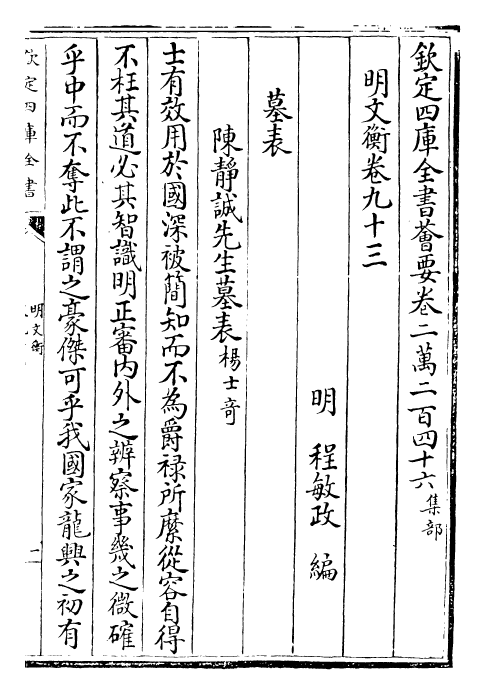 欽定四庫全書薈要卷二萬二百四十六集部
明文衡卷九十三
明 程敏政 編
墓表
陳靜誠先生墓表楊士奇
士有效用於國深被簡知而不為爵祿所縻從容自得
不枉其道必其智識明正審內外之辨察事幾之微確
乎中而不奪此不謂之豪傑可乎我國家龍興之初有
欽定四庫全書
明文衡